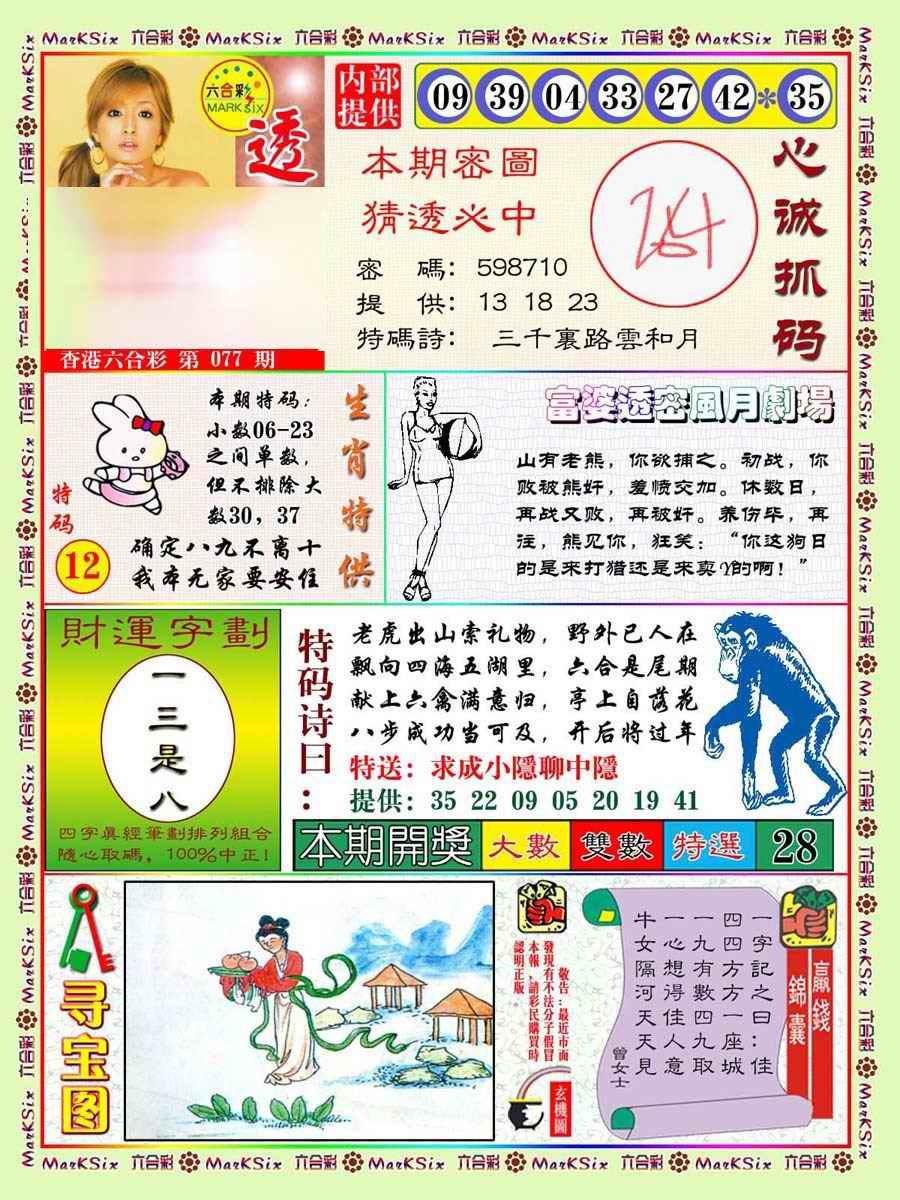 MarKSix 六合彩 MarKSix 六合彩 MarKSix 六合彩 MarKSix 六合彩 MarKSix 六合彩
六合彩
MARK SIX
透
内部
提供
09 39 04 33 27 42 * 35
本期密圖
猜透必中
密 碼: 598710
提 供: 13 18 23
特碼詩: 三千裏路雲和月
心诚抓码
香港六合彩 第 077 期
特码
12
本期特码:
小数06-23
之间单数,
但不排除大
数30, 37
确定八九不离十
我本无家要安住
生肖特供
富婆透密風月劇場
山有老熊, 你欲捕之。初战, 你
败被熊奸, 羞愤交加。休数日,
再战又败, 再被奸。养伤毕, 再
往, 熊见你, 狂笑: “你这狗日
的是来打猎还是来卖Y的啊! ”
財運字劃
一三是八
四字真經筆劃排列組合
隨心取碼, 100%中正!
特码诗曰:
老虎出山索礼物, 野外已人在
飘向四海五湖里, 六合是尾期
献上六禽满意归, 亭上自落花
八步成功当可及, 开后将过年
特送: 求成小隱聊中隱
提供: 35 22 09 05 20 19 41
本期開獎 大數 雙數 特選 28
寻宝图
敬告:最近市面
發現有不法分子假冒
本報,請彩民購買時
認明正版。
玄機圖
一字記之曰:佳
四四方方一座城
一九有數四九取
一心想得佳人意
牛女隔河天天見
曾女士
贏錢
錦囊
MarKSix 六合彩 MarKSix 六合彩 MarKSix 六合彩 MarKSix 六合彩 MarKSix 六合彩